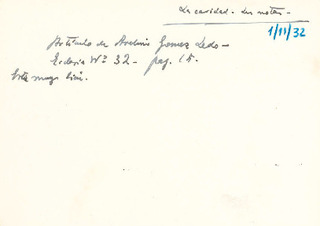 La caridad - Sus notas -
1/11/32
Artículo de Avelino Gomez Ledo -
Ecclesia Nº 32 - pag. 15.
Está muy bien.